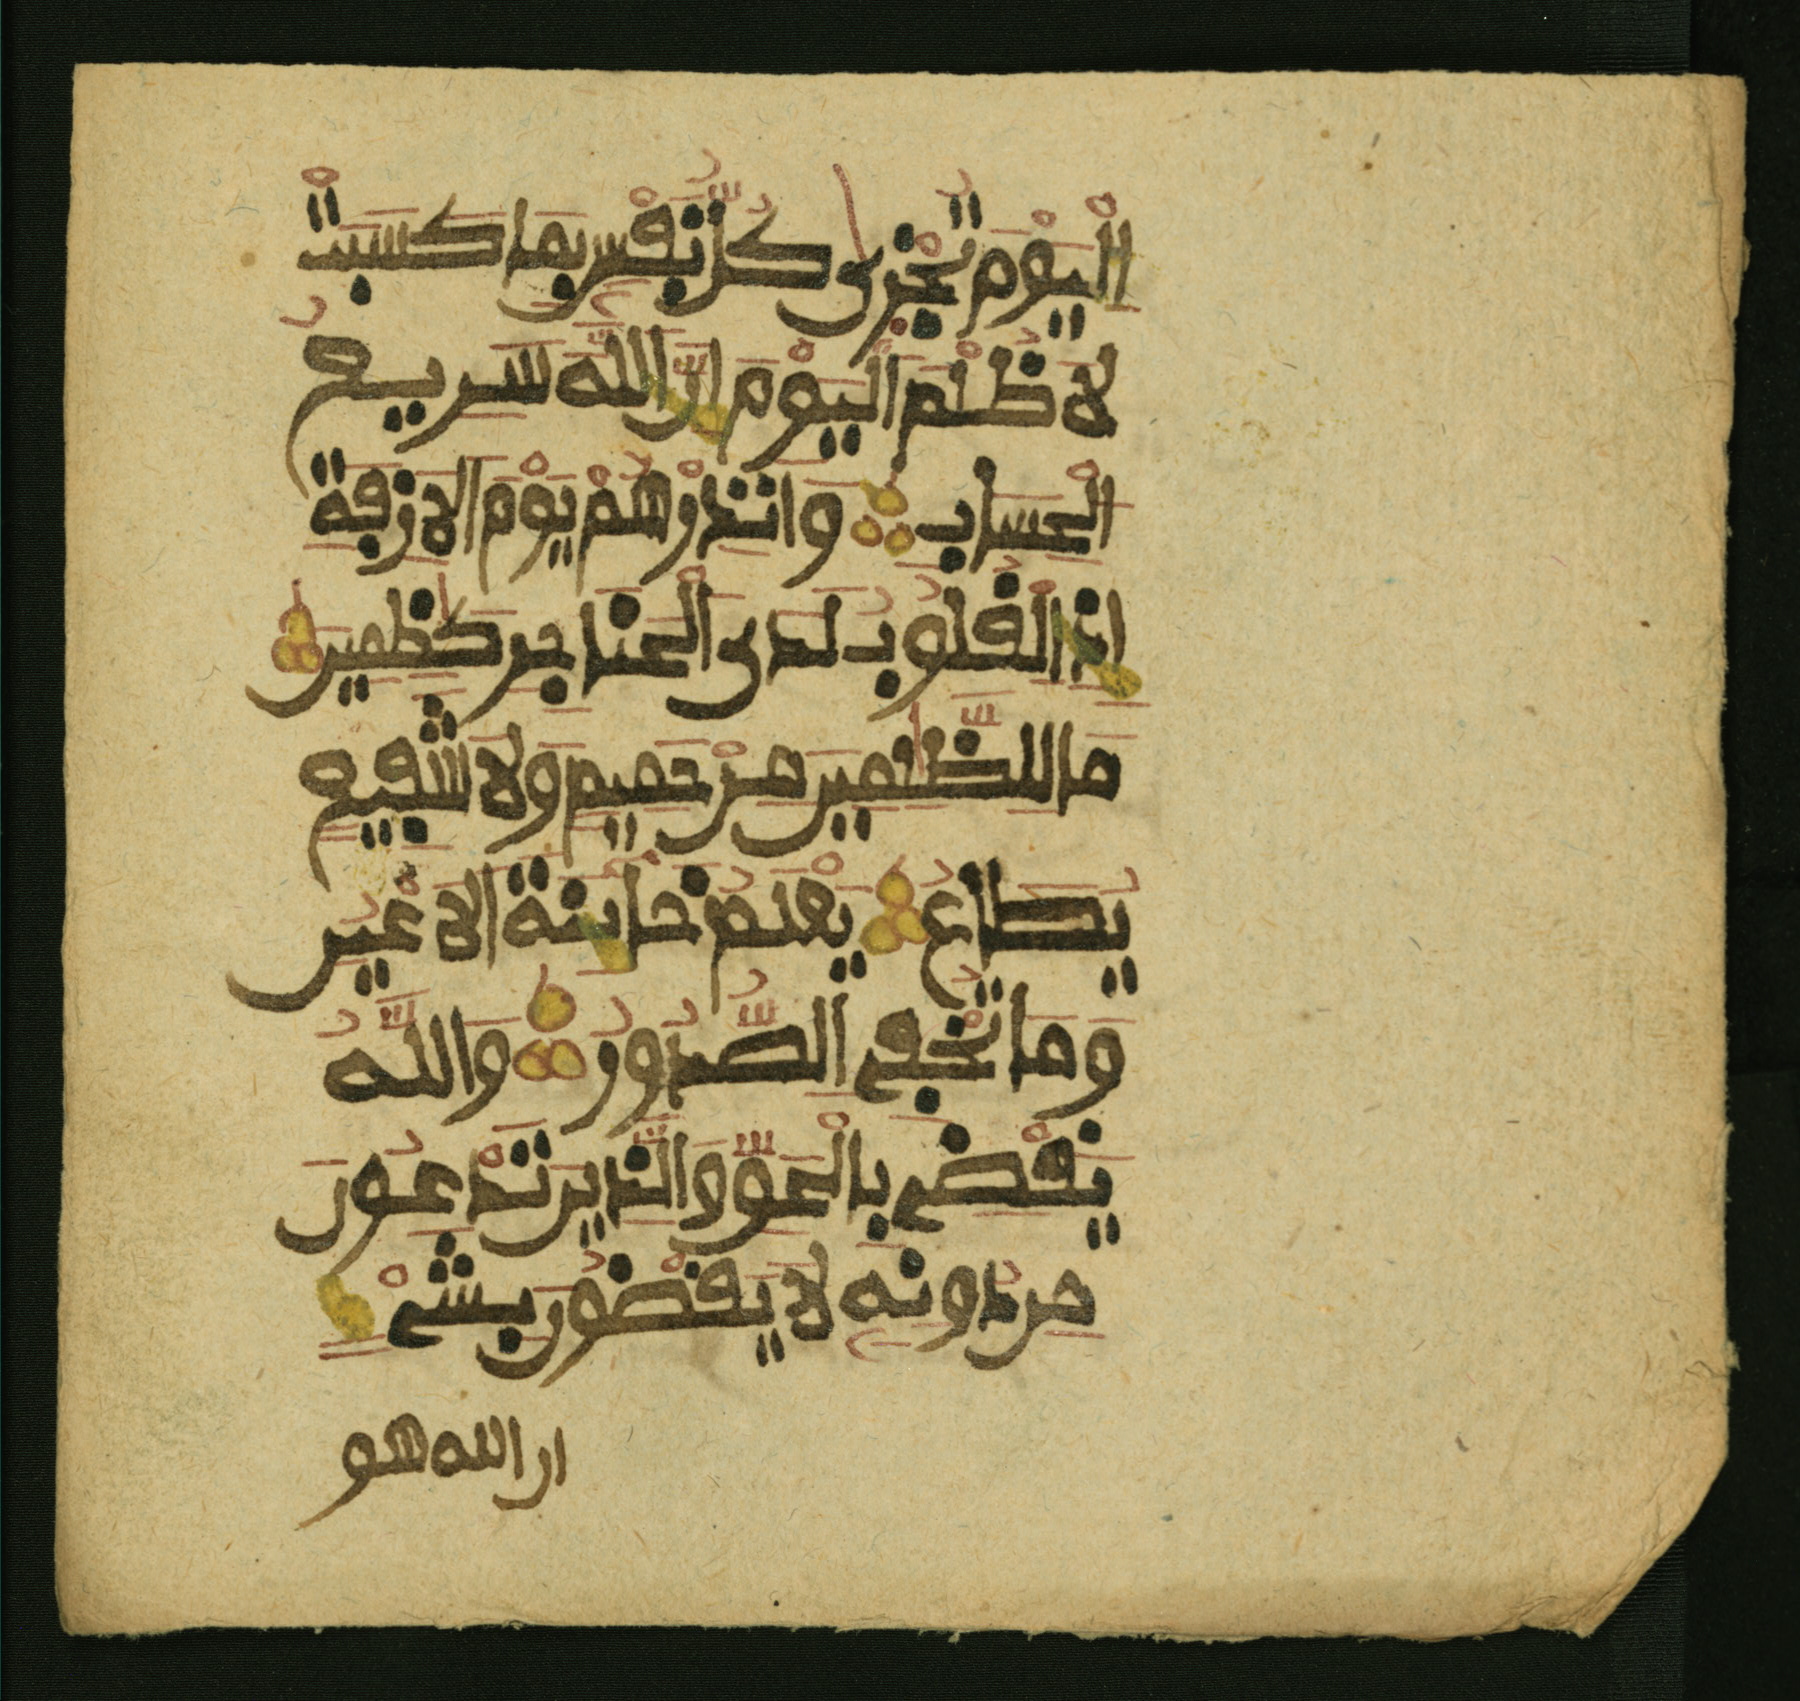 اليَوْمَ تُجْزَىٰ كُلُّ نَفْسٍ بِمَا كَسَبَتْ
لَا ظُلْمَ اليَوْمَ إِنَّ اللَّهَ سَرِيعُ
الْحِسَابِ وَأَنْذِرْهُمْ يَوْمَ الْازِفَةِ
إِذِ الْقُلُوبُ لَدَى الْحَنَاجِرِ كَٰظِمِينَ
مَا لِلظَّٰلِمِينَ مِنْ حَمِيمٍ وَلَا شَفِيعٍ
يُطَاعُ يَعْلَمُ خَائِنَةَ الَاعْيُنِ
وَمَا تُخْفِي الصُّدُورُ وَاللَّهُ
يَقْضِي بِالْحَقِّ وَالَّذِينَ تَدْعُونَ
مِن دُونِهِ لَا يَقْضُونَ بِشَيْءٍ
ان الله هو